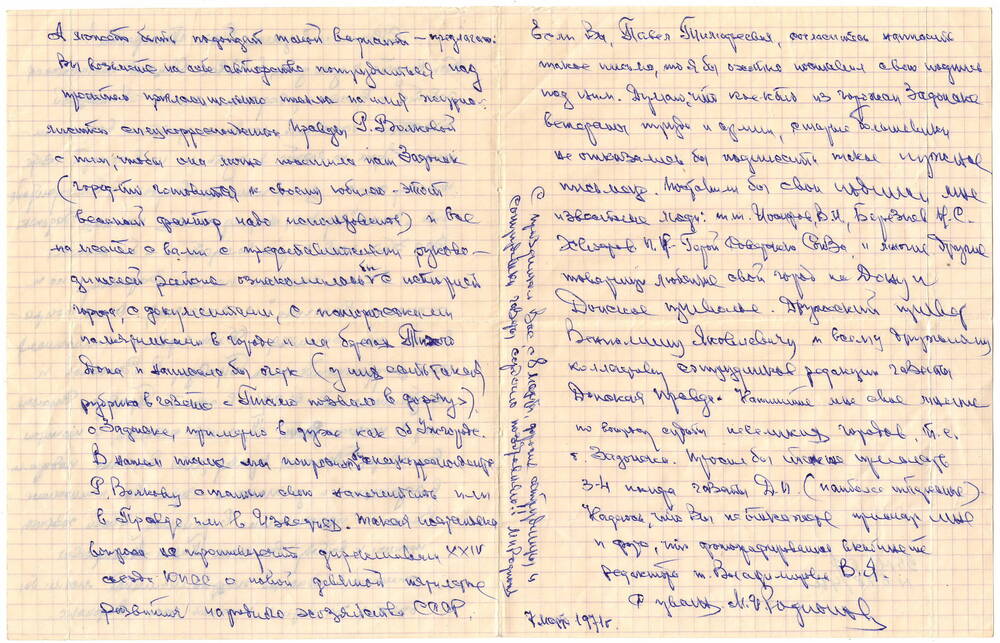 А может быть подойдет такой вариант — предлагаю:
Вы возьмите на себя авторство потрудиться над
письма на имя журна-
листки спецкорреспондента Правды Р. Волковой
с тем, чтобы она посетила наш Задонск
(город-то готовится к своему юбилею - этот
важный фактор надо использовать) и вместе
с вами с представителями руково-
дителей района ознакомилась бы с историей
города, с документами, с
памятниками в городе и на берегах Тихого
Дона и написала бы очерк (у них есть такая
рубрика в газете "Письмо позвало в дорогу")
о Задонске, примерно в духе как об Ужгороде.
В нашем письме мы попросим бы спецкорреспондента
Р. Волкову статью свою напечатать или
в Правде или в Известиях. Такая постановка
вопроса не противоречит директивам XXIV
съезда КПСС о новой девятой пятилетке
развития народного хозяйства СССР.
Если Вы, Павел Тимофеевич, согласитесь написать
такое письмо, то я бы охотно поставил свою подпись
под ним. Думаю, что кое-кто из горожан Задонска
ветераны труда и армии, старые большевики
не отказались бы подписать такое нужное
письмо. Поставили бы свои подписи мне
известные люди: т.т. В.И., Н.С.
Герой Советского Союза и многие другие
товарищи любящие свой город на Дону и
Донское приволье. Дружеский привет
Вениамину Яковлевичу и всему дружному
коллективу сотрудников редакции газеты
Донская Правда. Напишите мне свое мнение
по вопросу судьбы невеликих городов, т.е.
г. Задонска. Просил бы прислать
3-4 номера газеты Д.П. (наиболее).
Надеюсь, что Вы не откажете прислать мне
и фото, что фотографировались в кабинете
редактора т. Владимирова В.Я.
С уваж. М. Ф. Родионов
7 март 1971 г.
С праздником Вас с 8 марта, дорогие сотрудницы и
сотрудники газеты сердечно поздравляю! М. Родионов